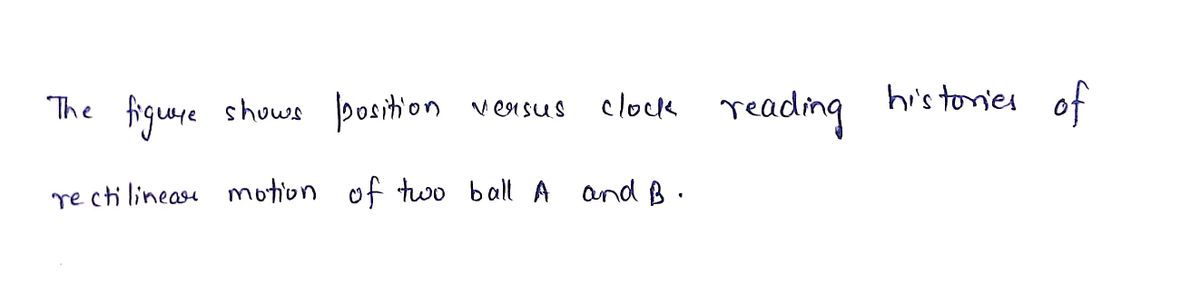 The figure shows position versus clock reading histories of
rectilinear motion of two ball A and B.